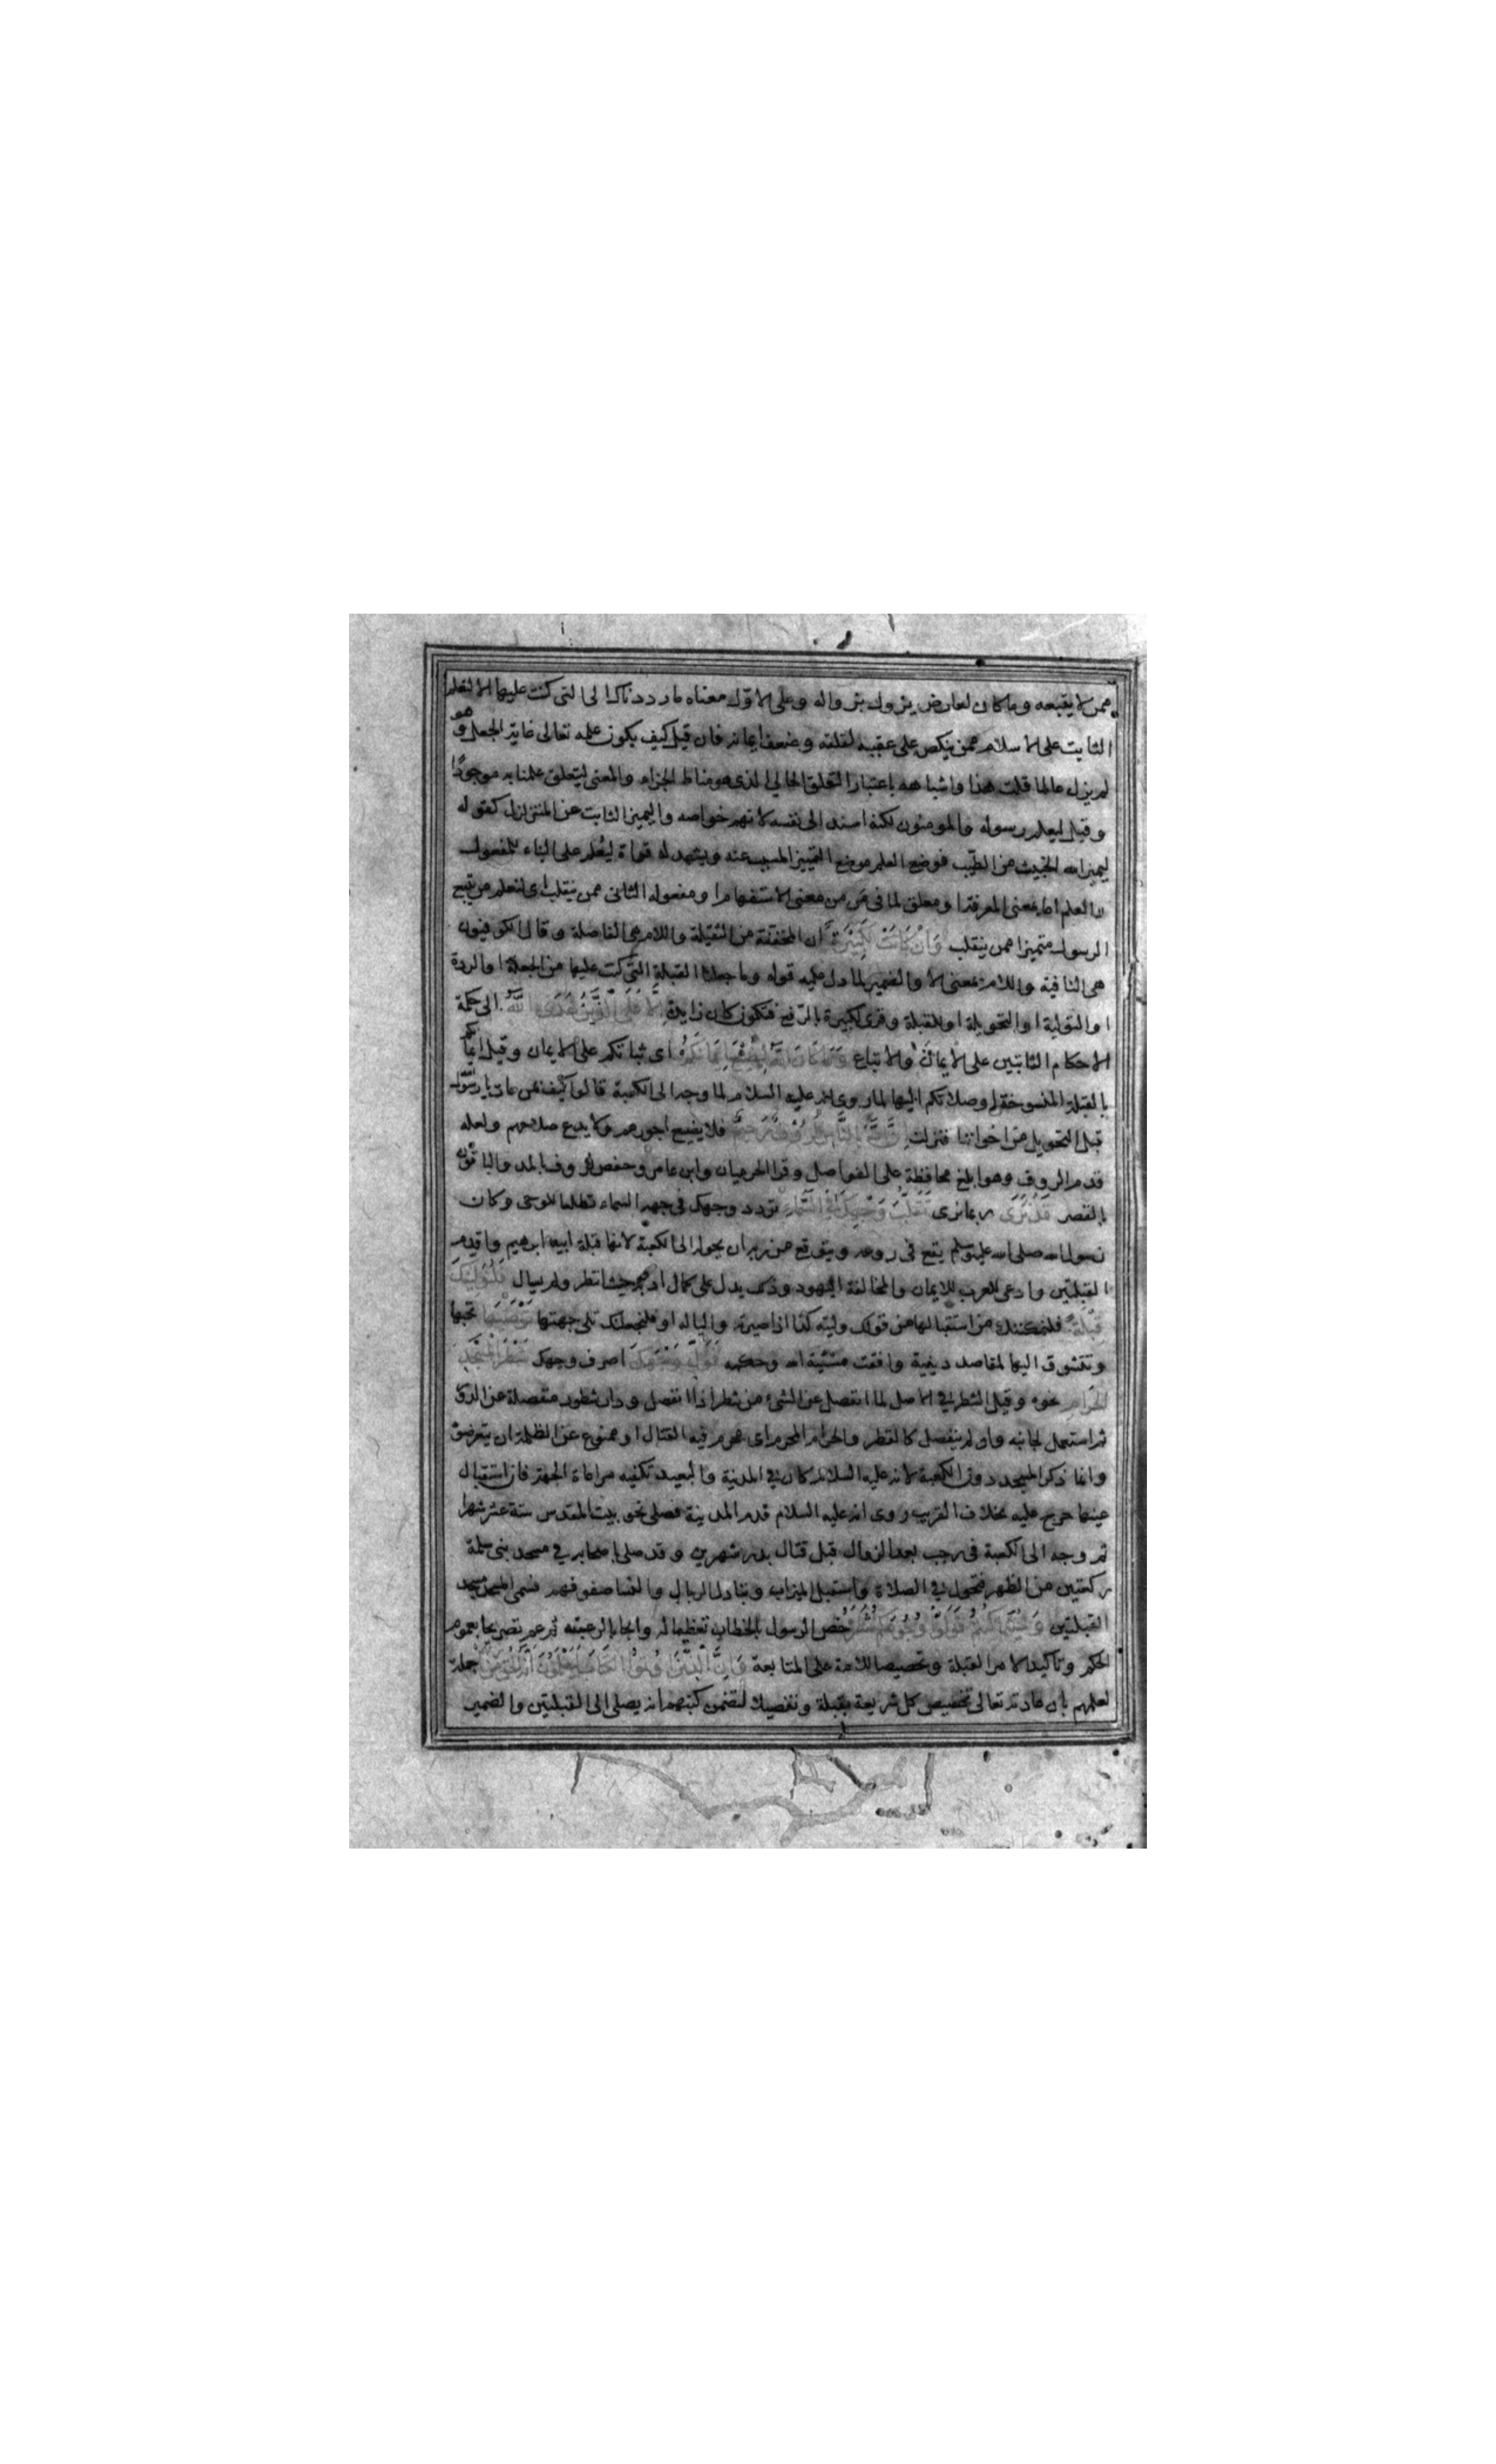 ممن لا يتبعه وما كان لعارض يزول بزواله وعلى الاول معناه ما رددناك الى التى كنت عليها الا لنعلم
الثابت على الاسلام ممن ينكص على عقبيه لقلته وضعف ايمانه فان قيل كيف يكون علمه تعالى غاية الجعل وهو
لم يزل عالما قلت هذا واشباهه باعتبار التعلق الحالي الذى هو مناط الجزاء والمعنى ليتعلق علمنا به موجودًا
وقيل ليعلم رسوله والمومنون لكنه اسند الى نفسه لانهم خواصه و اليميز الثابت عن المتزلزل كقوله
ليميز الله الخبيث من الطيّب فوضع العلم موضع التمييز المسبب عنه ويشهد له قراة ليُعلم على البناء للمفعول
والعلم اما بمعنى المعرفة او معلق لما فى مَن من معنى الاستفهام او مفعوله الثانى ممن ينقلب اى لنعلم من يتبع
الرسول متميزا ممن ينقلب وَاِنْ كَانَتْ لَكَبِيْرَةً ان المخففة من الثقيلة واللام هى الفاصلة وقال الكوفيون
هى النافية واللام بمعنى الا والضمير لما دل عليه قوله وما جعلنا القبلة التى كنت عليها من الجعلة او الردة
او التولية او التحويلة او للقبلة وقرئ لكبيرة بالرفع فتكون كان زايدة اِلَّا عَلَى الَّذِيْنَ هَدَى اللَّهُ الى حكمة
الاحكام الثابتين على الايمان والاتباع وَمَا كَانَ اللَّهُ لِيُضِيْعَ اِيْمَانَكُمْ اى ثباتكم على الايمان وقيل ايمانكم
بالقبلة المنسوخة او صلاتكم اليها لما روى انه عليه السلام لما وجه الى الكعبة قالوا كيف بمن مات يا رسول الله
قبل التحويل من اخواننا فنزلت اِنَّ اللَّهَ بِالنَّاسِ لَرَؤُفٌ رَحِيْمٌ فلا يضيع اجورهم ولا يدع صلاحهم ولعله
قدم الروف وهو ابلغ محافظة على الفواصل وقرا الحرميان وابن عامر وحفص لرؤف بالمد والباقون
بالقصر قَدْ نَرَى ربما نرى تَقَلُّبَ وَجْهِكَ فِي السَّمَاءِ تردد وجهك فى جهة السماء تطلعا للوحى وكان
رسول الله صلى الله عليه وسلم يقع فى روعه ويتوقع من ربه ان يحوله الى الكعبة لانها قبلة ابيه ابرهيم واقدم
القبلتين وادعى للعرب للايمان والمخالفة اليهود وذلك يدل على كمال ادبه حيث انتظر ولم يسال فَلَنُوَلِّيَنَّكَ
قِبْلَةً فلنمكننك من استقبالها من قولك وليته كذا اذا صيرته واليا له او فلنجعلنك تلى جهتها تَرْضَيهَا تحبها
وتتشوق اليها لمقاصد دينية وافقت مشئية الله وحكمه فَوَلِّ وَجْهَكَ اصرف وجهك شَطْرَ الْمَسْجِدِ
الْحَرَامِ نحوه وقيل الشطر في الاصل لما انفصل عن الشئ من شطر اذا انفصل ودار شطور منفصلة عن الدور
ثم استعمل لجانبه وان لم ينفصل كالقطر والحرام المحرم اى محرم فيه القتال او ممنوع عن الظلمة ان يتعرضوه
وانما ذكر المسجد دون الكعبة لانه عليه السلام كان في المدينة والبعيد تكفيه مراعاة الجهة فان استقبال
عينها حرج عليه بخلاف القريب روى انه عليه السلام قدم المدينة فصلى نحو بيت المقدس ستة عشر شهرا
ثم وجه الى الكعبة فى رجب بعد الزوال قبل قتال بدر شهرين وقد صلى باصحابه في مسجد بنى سلمة
ركعتين من الظهر فتحول في الصلاة واستقبل الميزاب وتبادل الرجال والنسا صفوفهم فسمى المسجد مسجد
القبلتين وَحَيْثُ مَا كُنْتُمْ فَوَلُّوْا وُجُوْهَكُمْ شَطْرَهُ خص الرسول بالخطاب تعظيما له وايجابا لرغبته ثم عم تصريحا بعموم
الحكم وتاكيدا لامر القبلة وتحضيضا للامة على المتابعة وَاِنَّ الَّذِيْنَ اُوْتُوا الْكِتَابَ لَيَعْلَمُوْنَ اَنَّهُ الْحَقُّ مِنْ جملة
لعلمهم بان عادته تعالى تخصيص كل شريعة بقبلة وتفصيلا لتضمن كتبهم انه يصلى الى القبلتين والضمير